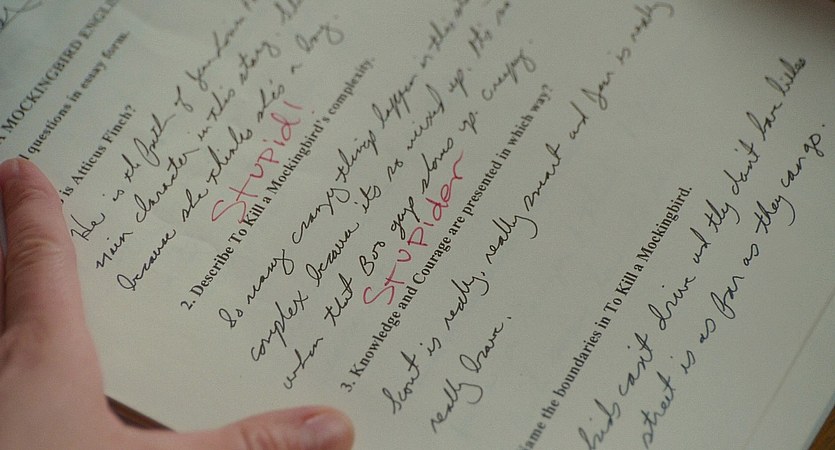 A MOCKINGBIRD ENGLI
questions in essay form.
is Atticus Finch?
He is the
main character in this story.
because she thinks she's a boy.
STUPID!
2. Describe To Kill a Mockingbird's complexity.
So many crazy things happen in this
complex because it's so mixed up. It's
when that Boo guy shows up. Creepy.
STUPIDER
3. Knowledge and Courage are presented in which way?
Scout is really, really smart and Jem is really
really brave.
ame the boundaries in To Kill a Mockingbird.
kids can't drive and they don't have bikes
street is as far as they can go.